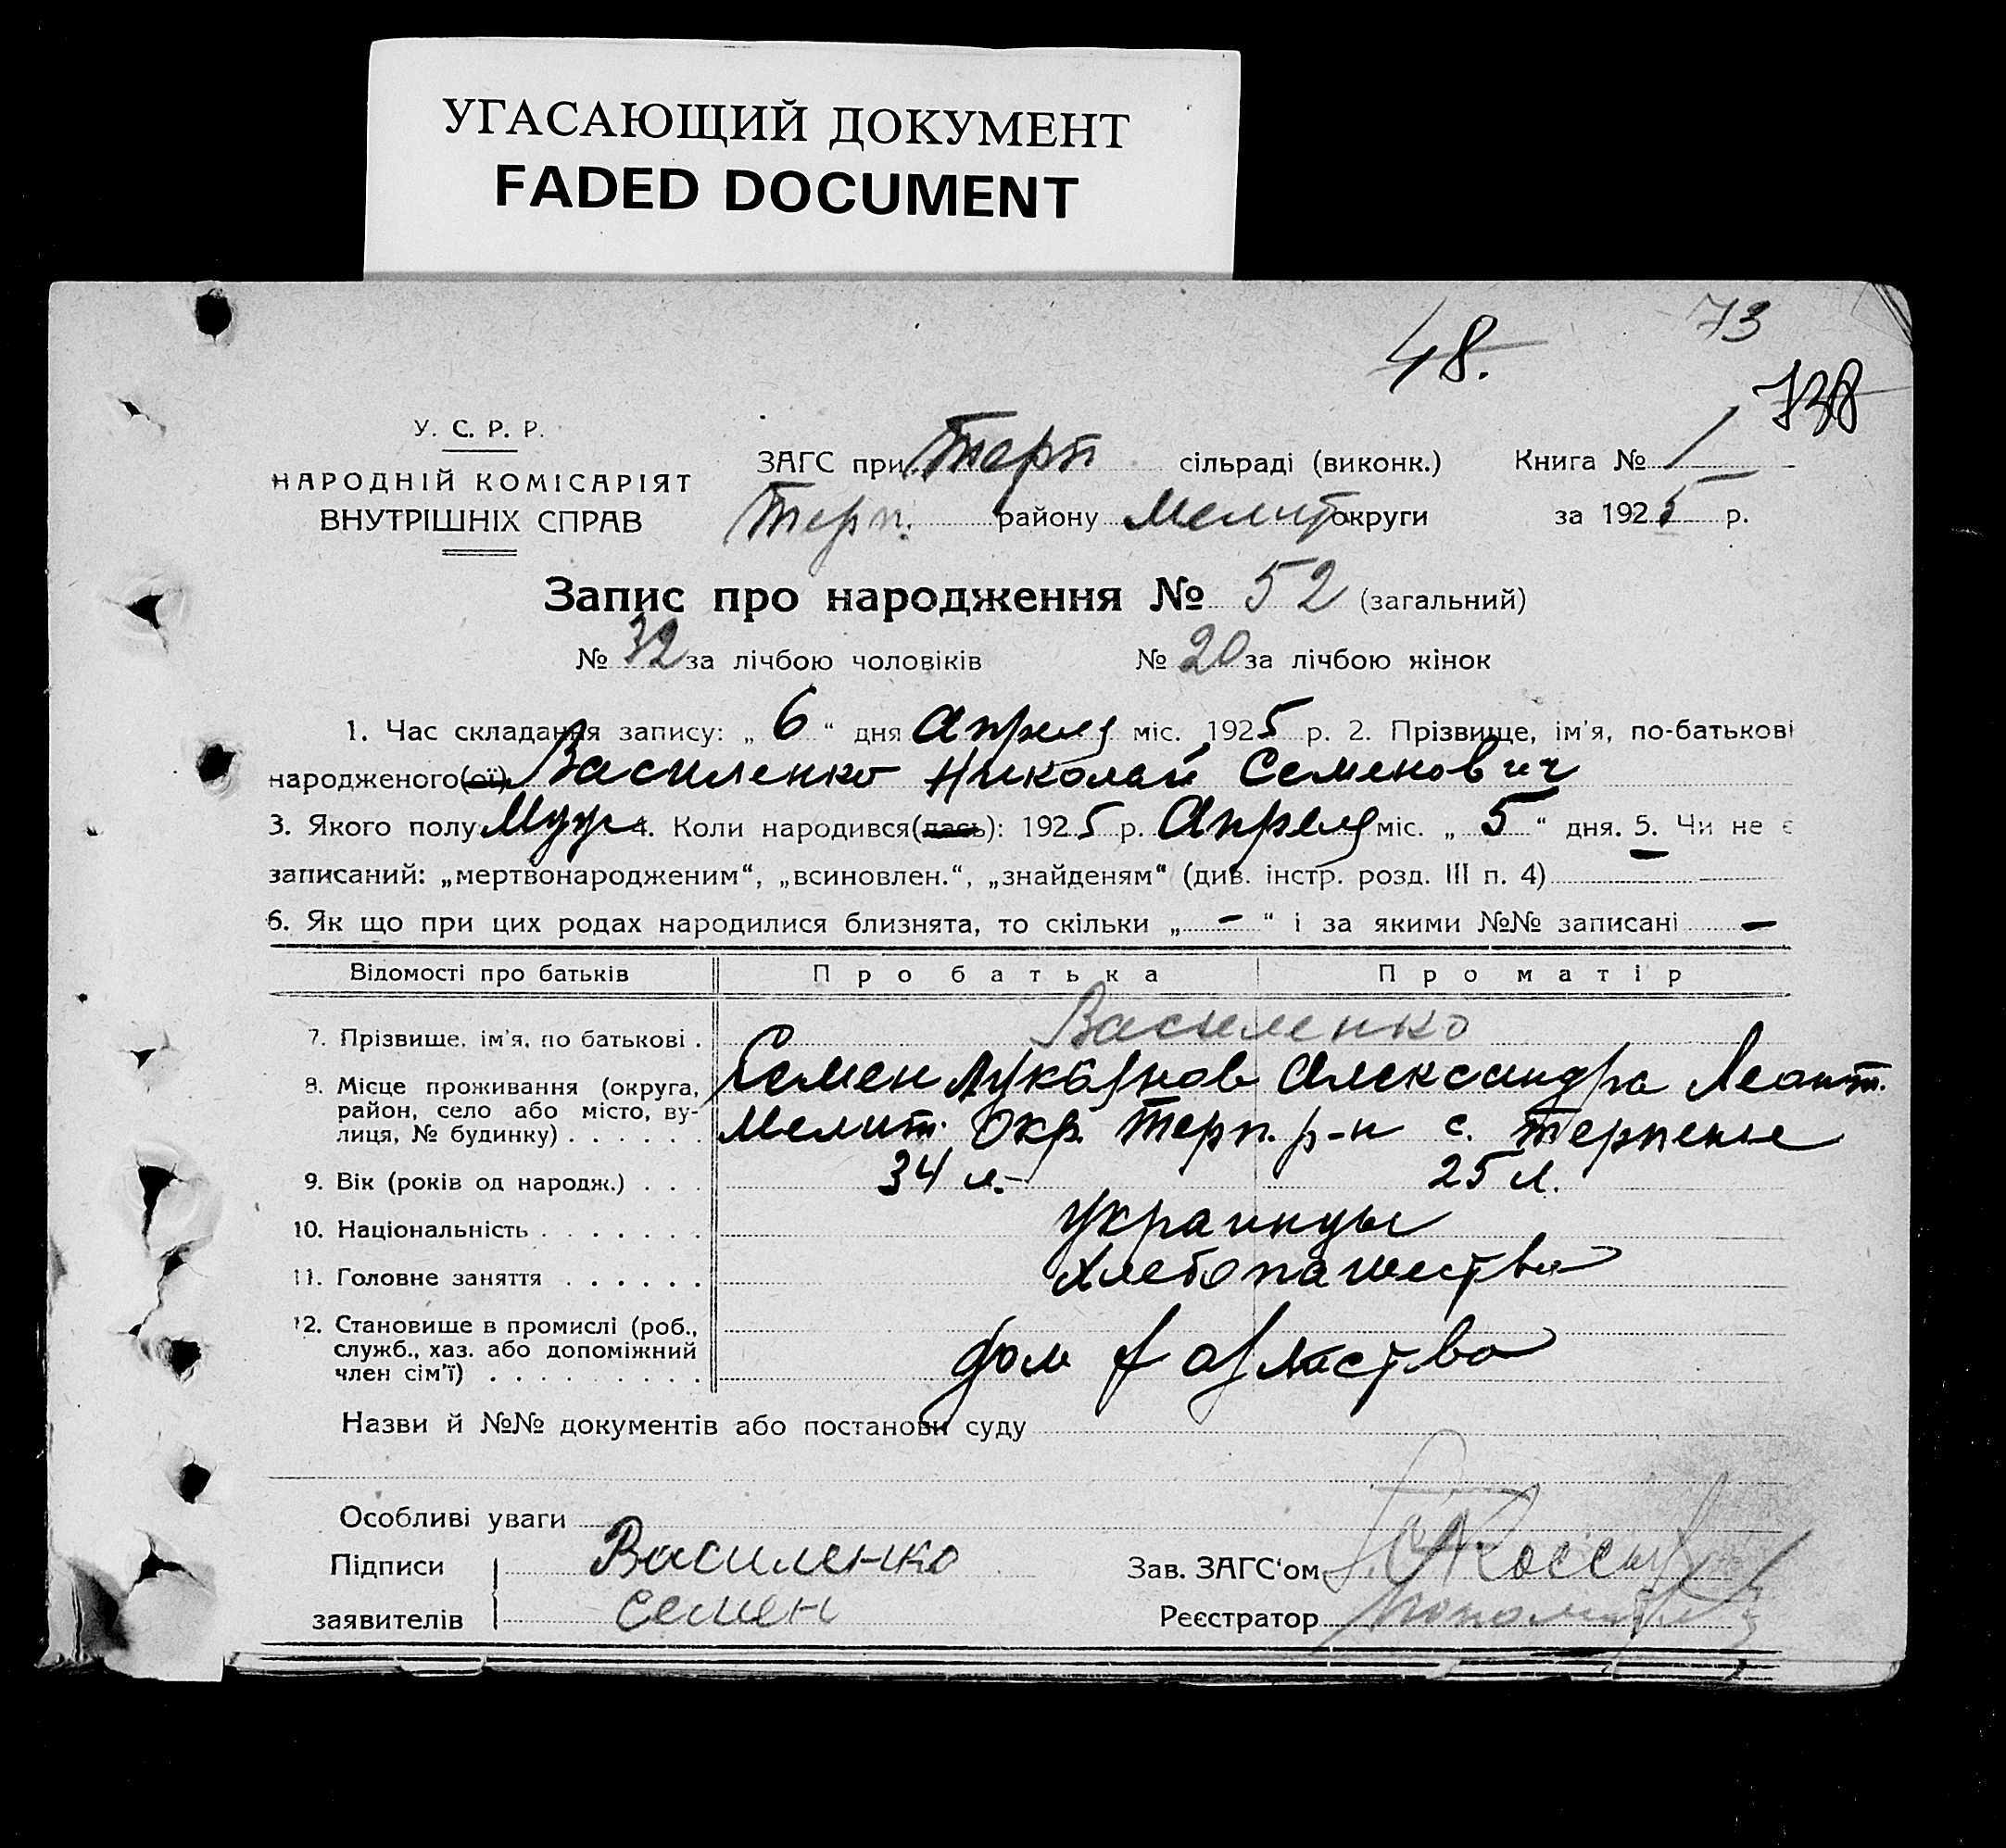 УГАСАЮЩИЙ ДОКУМЕНТ
FADED DOCUMENT
73
48.
У. С. Р. Р.
НАРОДНІЙ КОМІСАРІЯТ
ВНУТРІШНІХ СПРАВ
ЗАГС при Терп сільраді (виконк.) Книга № 1
Терп. району Мелит округи за 1925 р.
Запис про народження № 52 (загальний)
№ 32 за лічбою чоловіків № 20 за лічбою жінок
1. Час складання запису: „ 6 “ дня Апреля міс. 1925 р. 2. Прізвище, ім'я, по-батькові
народженого(ої) Василенко Николай Семенович
3. Якого полу Муж 4. Коли народився(лась): 1925 р. Апреля міс. „ 5 “ дня. 5. Чи не є
записаний: „мертвонародженим“, „всиновлен.“, „знайденям“ (див. інстр. розд. III п. 4)
6. Як що при цих родах народилися близнята, то скільки „ - “ і за якими №№ записані -
Відомості про батьків Про батька Про матір
7. Прізвище, ім'я, по батькові . Василенко
Семен Александра Леонт.
8. Місце проживання (округа, район, село або місто, вулиця, № будинку) . . . . . . Мелит. Окр. Терп. р-н с. Терпенье
9. Вік (років од народж.) . . . 34 л. 25 л.
10. Національність . . . . . . . Украинцы
11. Головне заняття . . . . . . Хлебопашество
12. Становище в промислі (роб.,
служб., хаз. або допоміжний
член сім'ї) . . . . . . . . .
Назви й №№ документів або постанови суду
Особливі уваги
Підписи Василенко Зав. ЗАГС'ом
заявителів Семен Реєстратор